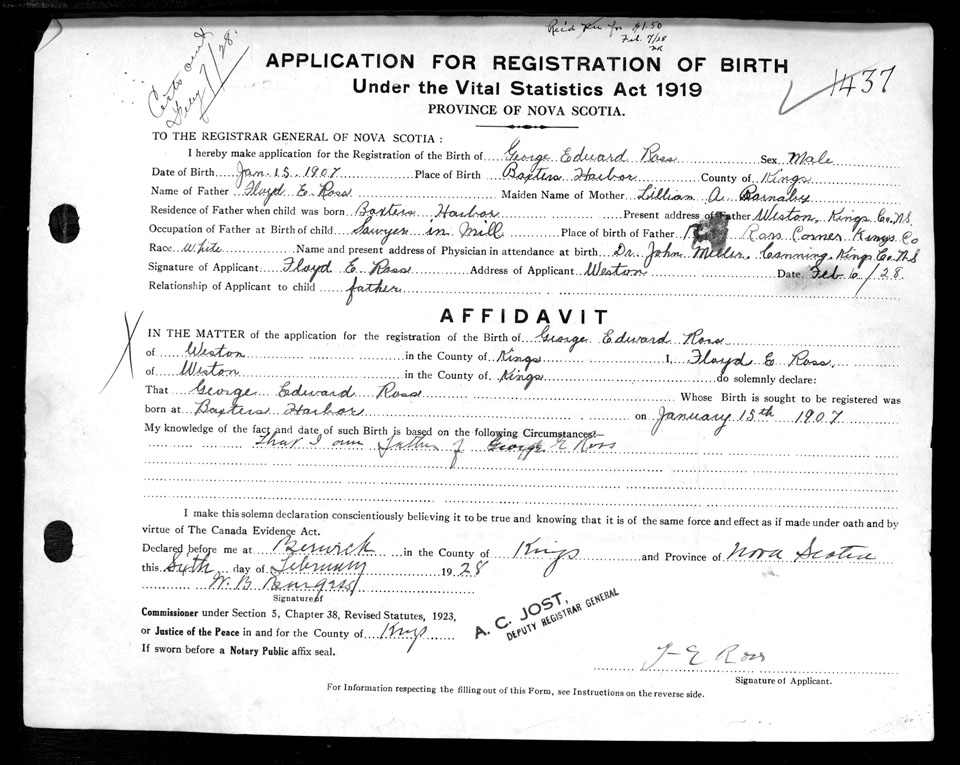 Rec'd Fee for $1.50
Feb. 7/28
Certs and
7/28.
1437
APPLICATION FOR REGISTRATION OF BIRTH
Under the Vital Statistics Act 1919
PROVINCE OF NOVA SCOTIA.
TO THE REGISTRAR GENERAL OF NOVA SCOTIA :
I hereby make application for the Registration of the Birth of George Edward Ross Sex Male
Date of Birth Jan. 15. 1907 Place of Birth Baxters Harbor County of Kings
Name of Father Floyd E. Ross Maiden Name of Mother Lillian A. Barnaby
Residence of Father when child was born Baxters Harbor Present address of Father Weston, Kings Co. N.S
Occupation of Father at Birth of child Sawyer in Mill Place of birth of Father Ross Corner Kings Co
Race White Name and present address of Physician in attendance at birth Dr. John Miller, Canning, Kings Co. N.S
Signature of Applicant Floyd E Ross Address of Applicant Weston Date Feb 6/28.
Relationship of Applicant to child father
AFFIDAVIT
X
IN THE MATTER of the application for the registration of the Birth of George Edward Ross
of Weston in the County of Kings I, Floyd E Ross.
of Weston in the County of Kings do solemnly declare:
That George Edward Ross Whose Birth is sought to be registered was
born at Baxters Harbor on January 15th 1907
My knowledge of the fact and date of such Birth is based on the following Circumstances:—
That I am Father of George E Ross
I make this solemn declaration conscientiously believing it to be true and knowing that it is of the same force and effect as if made under oath and by
virtue of The Canada Evidence Act.
Declared before me at Berwick in the County of Kings and Province of Nova Scotia
this Sixth day of February 1928
W. B. Burgess
Signature of
Commissioner under Section 5, Chapter 38, Revised Statutes, 1923,
or Justice of the Peace in and for the County of Kings
If sworn before a Notary Public affix seal.
A. C. JOST,
DEPUTY REGISTRAR GENERAL
F E Ross
Signature of Applicant.
For Information respecting the filling out of this Form, see Instructions on the reverse side.